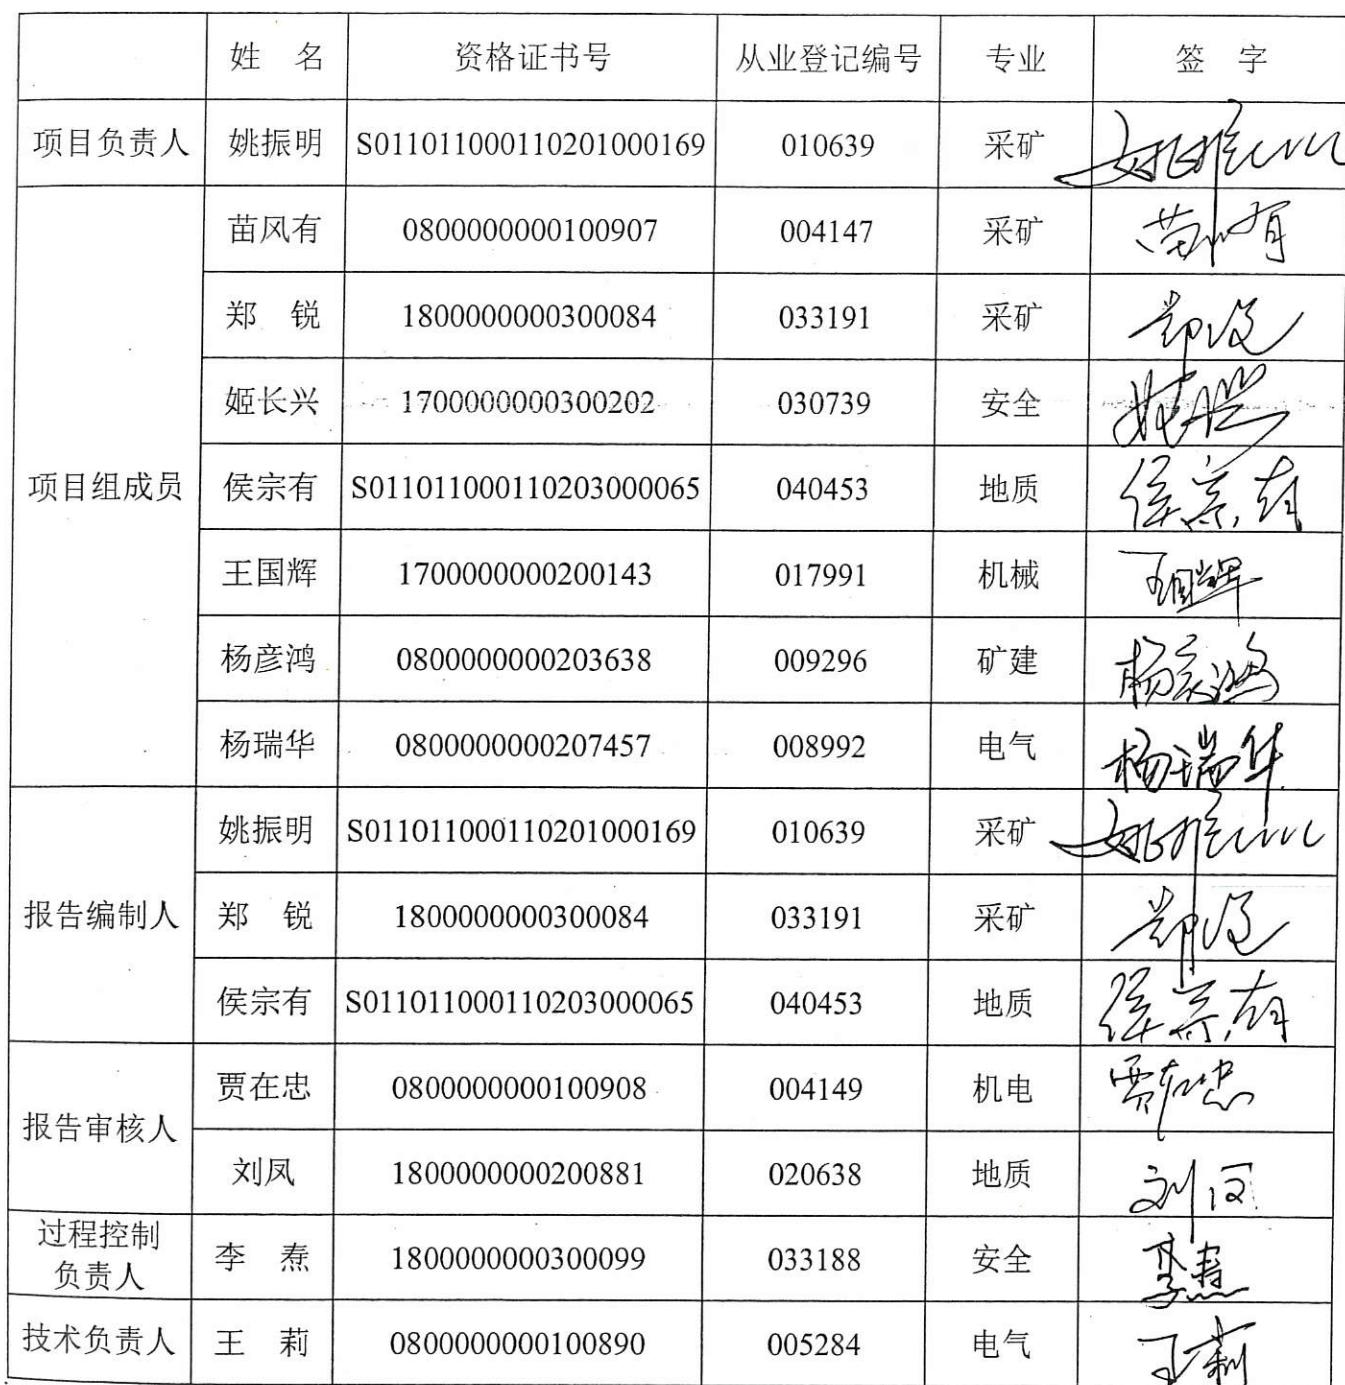 姓 名 资格证书号 从业登记编号 专业 签 字
项目负责人 姚振明 S011011000110201000169 010639 采矿 姚振明
项目组成员
苗风有 0800000000100907 004147 采矿 苗风有
郑 锐 1800000000300084 033191 采矿 郑锐
姬长兴 1700000000300202 030739 安全 姬长兴
侯宗有 S011011000110203000065 040453 地质 侯宗有
王国辉 1700000000200143 017991 机械 王国辉
杨彦鸿 0800000000203638 009296 矿建 杨彦鸿
杨瑞华 0800000000207457 008992 电气 杨瑞华
报告编制人
姚振明 S011011000110201000169 010639 采矿 姚振明
郑 锐 1800000000300084 033191 采矿 郑锐
侯宗有 S011011000110203000065 040453 地质 侯宗有
报告审核人
贾在忠 0800000000100908 004149 机电 贾在忠
刘凤 1800000000200881 020638 地质 刘凤
过程控制
负责人
李 焘 1800000000300099 033188 安全 李焘
技术负责人 王 莉 0800000000100890 005284 电气 王莉